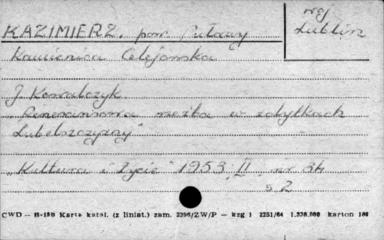 KAZIMIERZ, pow. Puławy
woj.
Lublin
Kamienica Celejowska
J. Kowalczyk
„Renesansowa rzeźba w zabytkach
Lubelszczyzny"
„Kultura i Życie" 1953 II, nr 34
s. 2
CWD — B-159 Karta katal. (z liniat.) zam. 2396/ZW/P — kzg 1 2251/64 1.230.000 karton 180